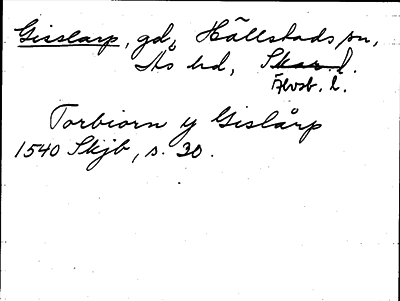 Gisslarp, gd, Hällstads sn,
Ås hd, Skar. l.
Älvsb. l.
Torbiorn y Gislårp
1540 Skjb, s. 30.